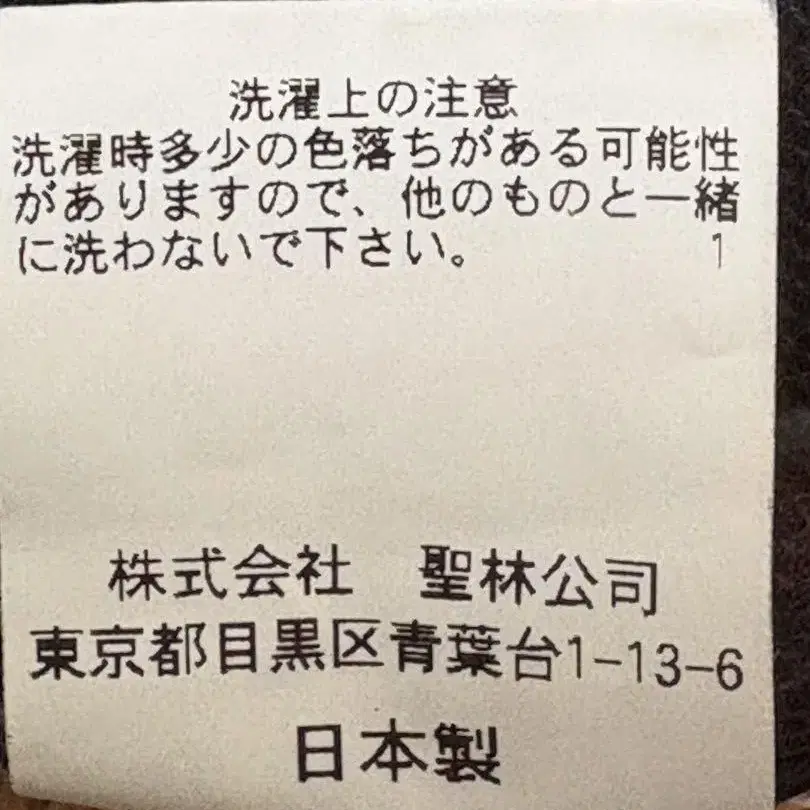 洗濯上の注意
洗濯時多少の色落ちがある可能性
がありますので、他のものと一緒
に洗わないで下さい。 1
株式会社 聖林公司
東京都目黒区青葉台1-13-6
日本製